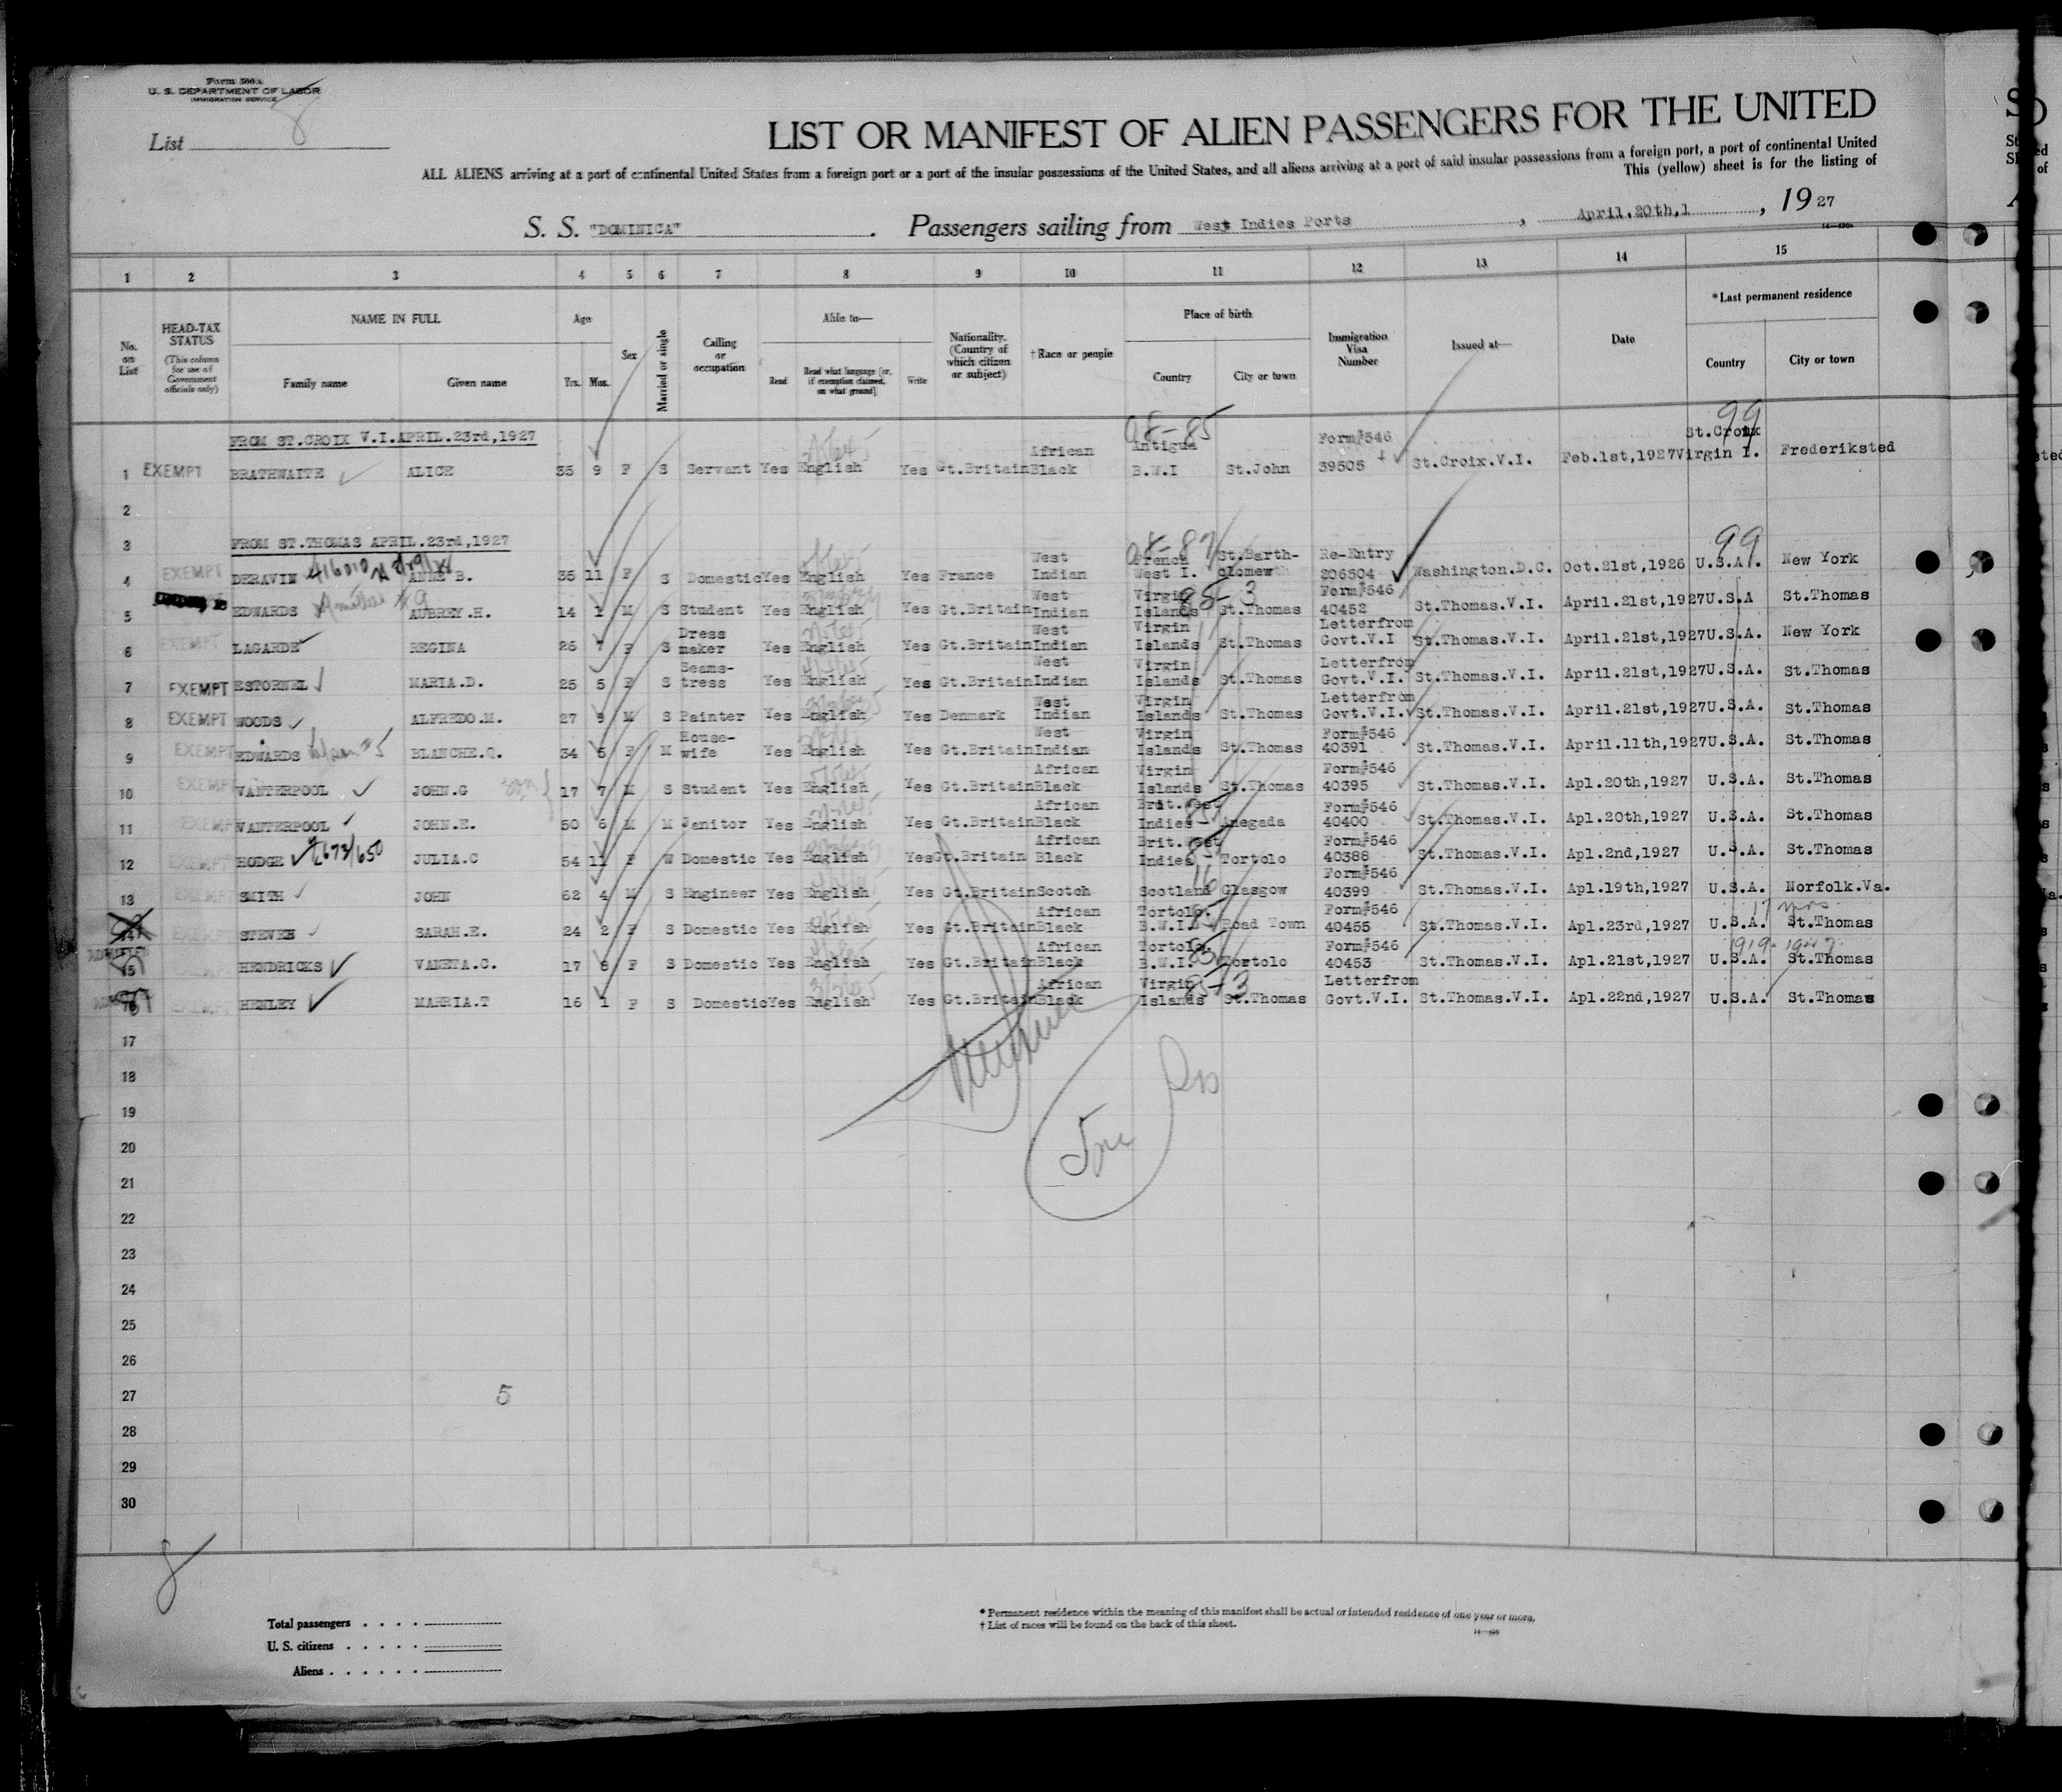 Form 500 A
U. S. DEPARTMENT OF LABOR
IMMIGRATION SERVICE
List 8
LIST OR MANIFEST OF ALIEN PASSENGERS FOR THE UNITED
ALL ALIENS arriving at a port of continental United States from a foreign port or a part of the insular possessions of the United States, and all aliens arriving at a port of said insular possessions from a foreign port, a port of continental United
This (yellow) sheet is for the listing of
S. S. "DOMINICA" . Passengers sailing from West Indies Ports , April.20th,1 , 1927
1 2 3 4 5 6 7 8 9 10 11 12 13 14 15
No. on List
HEAD-TAX STATUS (This column for use of Government officials only)
NAME IN FULL Family name Given name
Age Yrs. Mos.
Sex
Married or single
Calling or occupation
Able to— Read Read what language [or, if exemption claimed, on what ground] Write
Nationality. (Country of which citizen or subject)
†Race or people
Place of birth Country City or town
Immigration Visa Number
Issued at—
Date
*Last permanent residence Country City or town
FROM ST.CROIX V.I.APRIL.23rd,1927
1 EXEMPT BRATHWAITE ALICE 35 9 F S Servant Yes English Yes Gt.Britain African Black Antigua B.W.I St.John Form#546 39505 St.Croix.V.I. Feb.1st,1927 St.Croix Virgin I. Frederiksted
2
3 FROM ST.THOMAS APRIL.23rd,1927
4 EXEMPT DERAVIN ANNE B. 35 11 F S Domestic Yes English Yes France West Indian French West I. St.Barth-olomew Re-Entry 206504 Washington.D.C. Oct.21st,1926 U.S.A. New York
5 EDWARDS AUBREY.H. 14 1 M S Student Yes English Yes Gt.Britain West Indian Virgin Islands St.Thomas Form#546 40452 St.Thomas.V.I. April.21st,1927 U.S.A St.Thomas
6 EXEMPT LAGARDE REGINA 26 7 F S Dress maker Yes English Yes Gt.Britain West Indian Virgin Islands St.Thomas Letterfrom Govt.V.I St.Thomas.V.I. April.21st,1927 U.S.A. New York
7 EXEMPT ESTORNEL MARIA.D. 25 5 F S Seams-tress Yes English Yes Gt.Britain West Indian Virgin Islands St.Thomas Letterfrom Govt.V.I. St.Thomas.V.I. April.21st,1927 U.S.A. St.Thomas
8 EXEMPT WOODS ALFREDO.M. 27 9 M S Painter Yes English Yes Denmark West Indian Virgin Islands St.Thomas Letterfrom Govt.V.I. St.Thomas.V.I. April.21st,1927 U.S.A. St.Thomas
9 EXEMPT EDWARDS BLANCHE.C. 34 5 F M House-wife Yes English Yes Gt.Britain West Indian Virgin Islands St.Thomas Form#546 40391 St.Thomas.V.I. April.11th,1927 U.S.A. St.Thomas
10 EXEMPT VANTERPOOL JOHN.G son 17 7 M S Student Yes English Yes Gt.Britain African Black Virgin Islands St.Thomas Form#546 40395 St.Thomas.V.I. Apl.20th,1927 U.S.A. St.Thomas
11 EXEMPT VANTERPOOL JOHN.E. 50 6 M M Janitor Yes English Yes Gt.Britain African Black Brit.West Indies Anegada Form#546 40400 St.Thomas.V.I. Apl.20th,1927 U.S.A. St.Thomas
12 EXEMPT HODGE JULIA.C 54 11 F W Domestic Yes English Yes Gt.Britain African Black Brit.West Indies Tortolo Form#546 40388 St.Thomas.V.I. Apl.2nd,1927 U.S.A. St.Thomas
13 EXEMPT SMITH JOHN 62 4 M S Engineer Yes English Yes Gt.Britain Scotch Scotland Glasgow Form#546 40399 St.Thomas.V.I. Apl.19th,1927 U.S.A. Norfolk.Va.
14 EXEMPT STEVEN SARAH.E. 24 2 F S Domestic Yes English Yes Gt.Britain African Black Tortolo. B.W.I. Road Town Form#546 40455 St.Thomas.V.I. Apl.23rd,1927 U.S.A. St.Thomas
15 HENDRICKS VANETA.C. 17 8 F S Domestic Yes English Yes Gt.Britain African Black Tortolo. B.W.I. Tortolo Form#546 40453 St.Thomas.V.I. Apl.21st,1927 U.S.A. St.Thomas
16 EXEMPT HENLEY MARRIA.T 16 1 F S Domestic Yes English Yes Gt.Britain African Black Virgin Islands St.Thomas Letterfrom Govt.V.I. St.Thomas.V.I. Apl.22nd,1927 U.S.A. St.Thomas
17
18
19
20
21
22
23
24
25
26
27 5
28
29
30
8
Total passengers
U. S. citizens
Aliens
* Permanent residence within the meaning of this manifest shall be actual or intended residence of one year or more.
† List of races will be found on the back of this sheet.